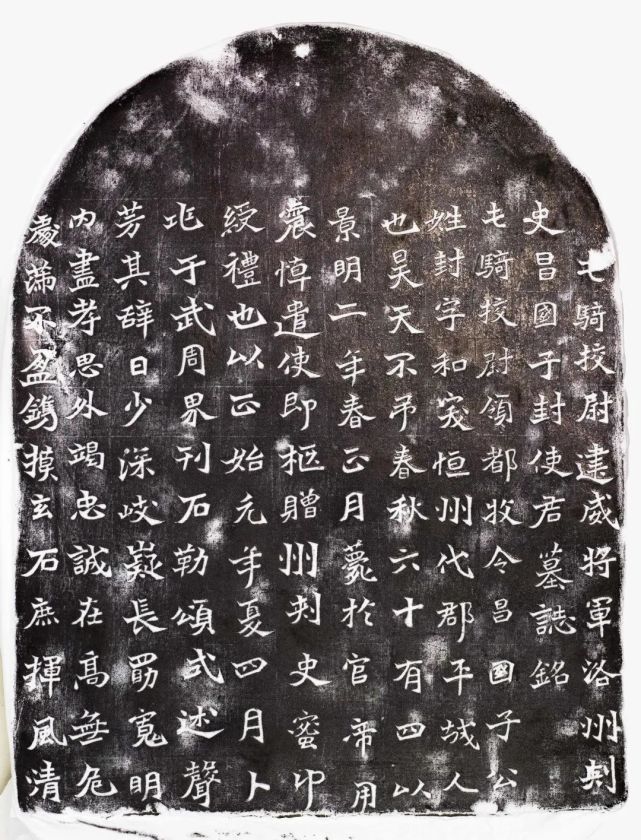 屯騎校尉建威將軍洛州刺
史昌國子封使君墓誌銘
屯騎校尉領都牧令昌國子公
姓封字和突恒州代郡平城人
也昊天不弔春秋六十有四以
景明二年春正月薨於官帝用
震悼遣使即柩贈州刺史蜜印
綬禮也以正始元年夏四月卜
兆于武周界刊石勒頌式述聲
芳其辞曰少深岐嶷長勗寬明
內盡孝思外竭忠誠在高無危
處滿不盈鐫摸玄石庶揮風清